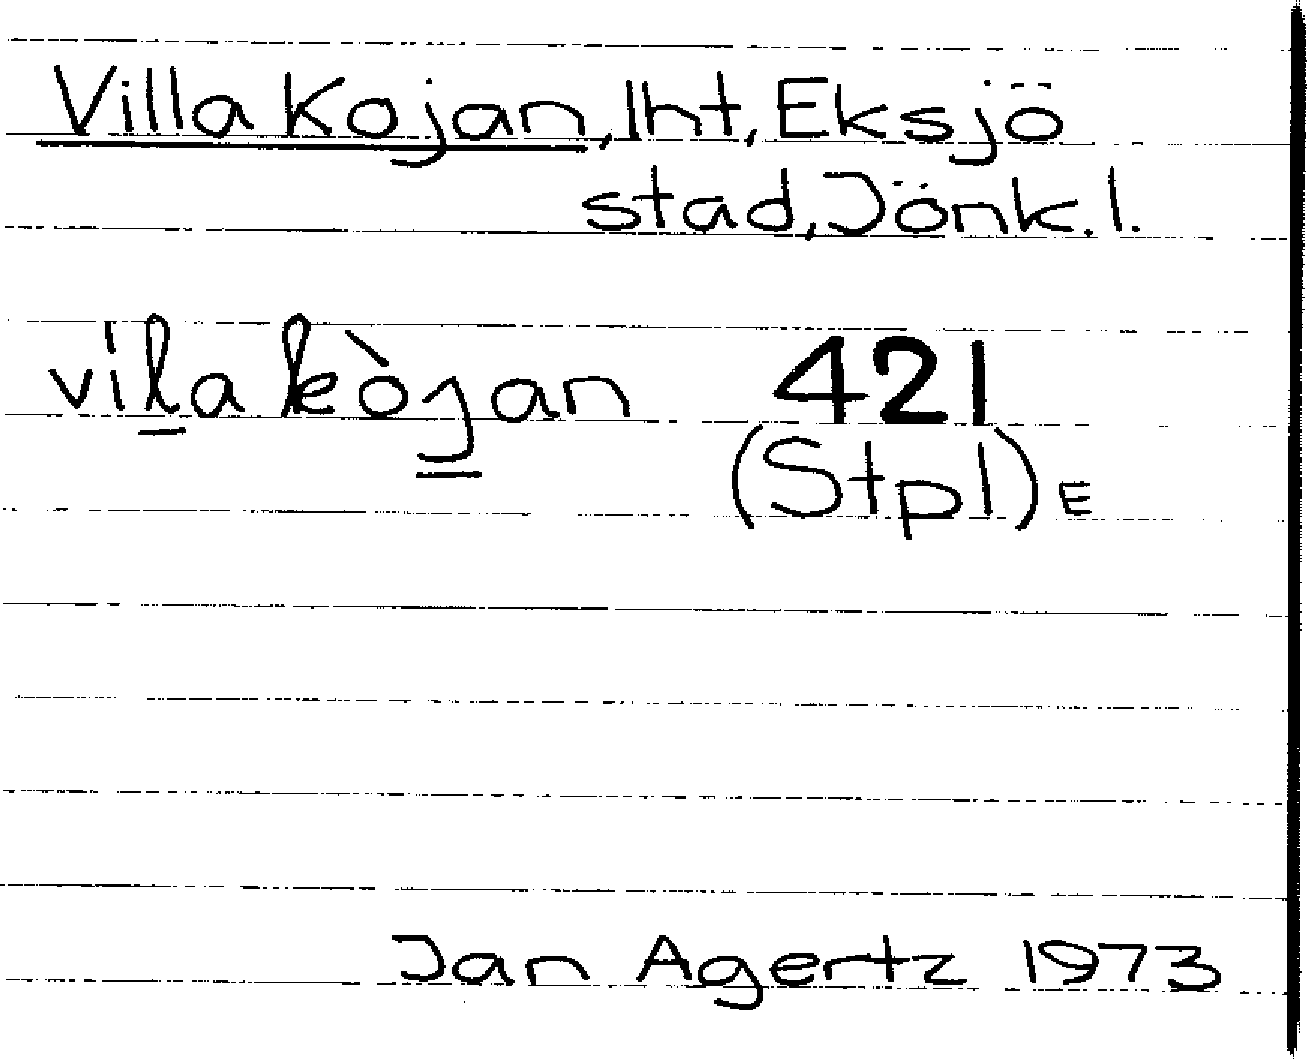 Villa Kojan, lht, Eksjö
stad, Jönk.l.
vi̍l̲a kòj̲an 421
(Stpl) E
Jan Agertz 1973